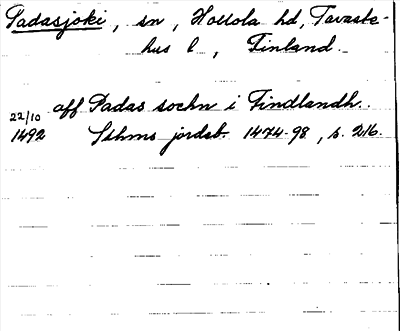 Padasjoki, sn, Hollola hd, Tavaste-
hus l, Finland.
22/10 aff Padas sochn i Findlandh.
1492 Sthms jordeb. 1474-98, s. 216.